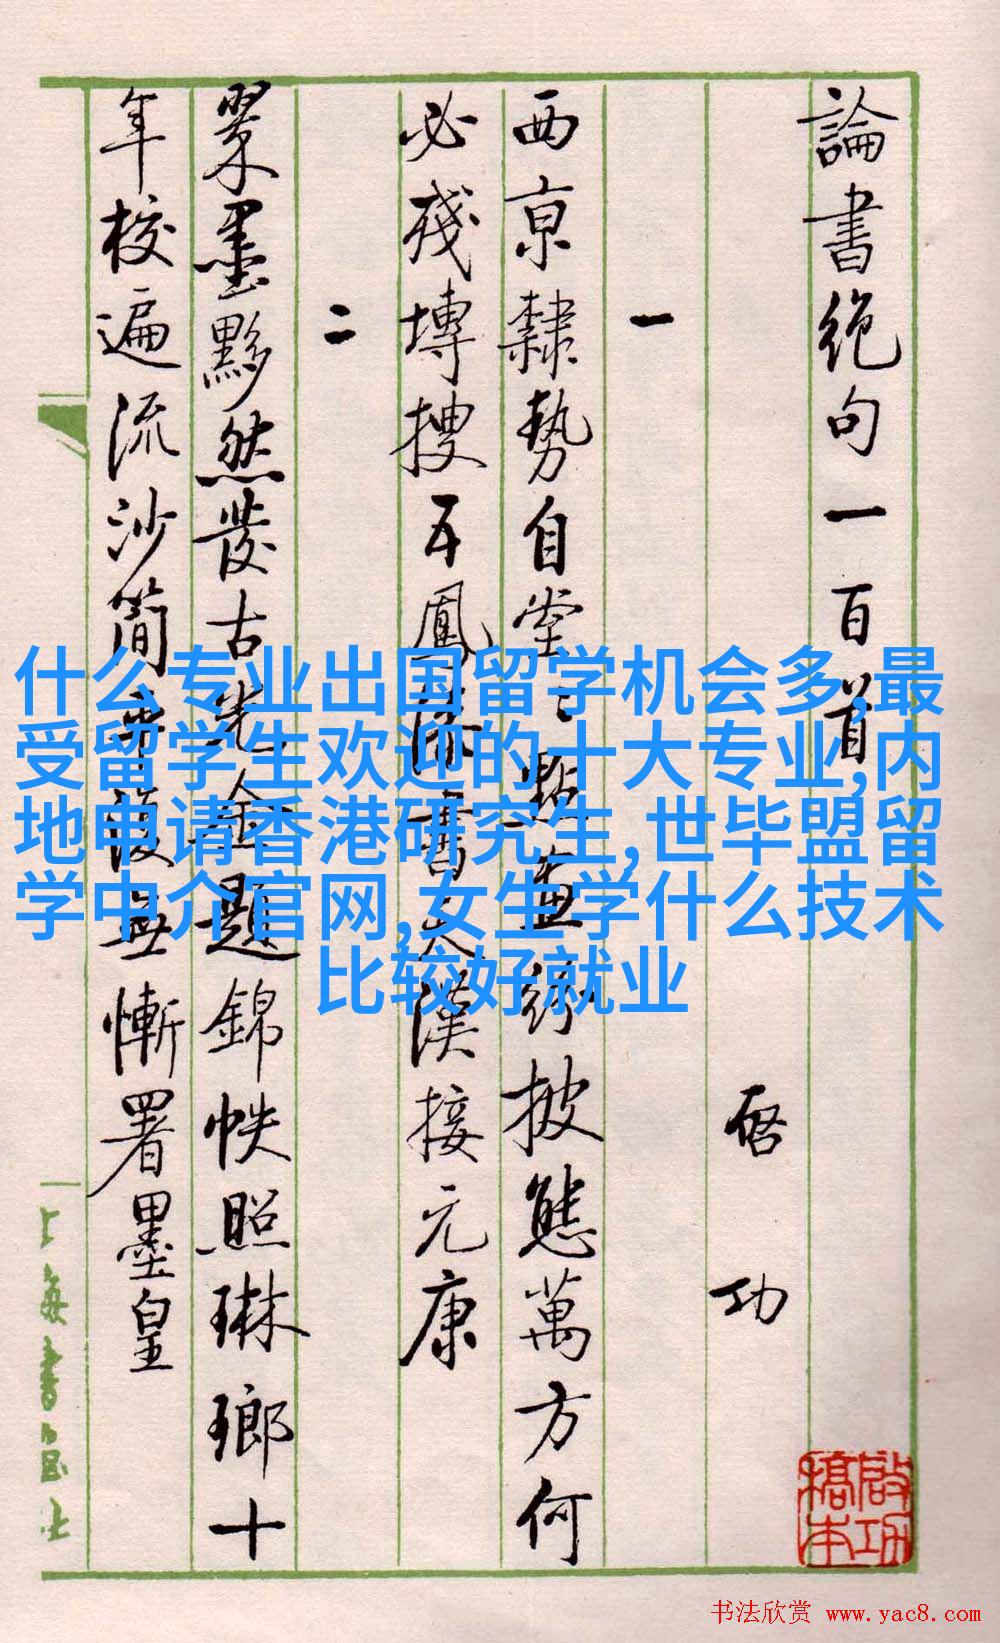 論書絶句一百首
启功
一
西京隸勢自堂〻點畫紛披態萬方何
必殘塼搜五鳳漆書天漢接元康
二
翠墨黟然發古光金題錦帙照琳瑯十
年校遍流沙簡平復無慚署墨皇
上海書画社
啟功
稿本
什么专业出国留学机会多,最
受留学生欢迎的十大专业,内
地申请香港研究生,世毕盟留
学中介官网,女生学什么技术
比较好就业
书法欣赏 www.yac8.com